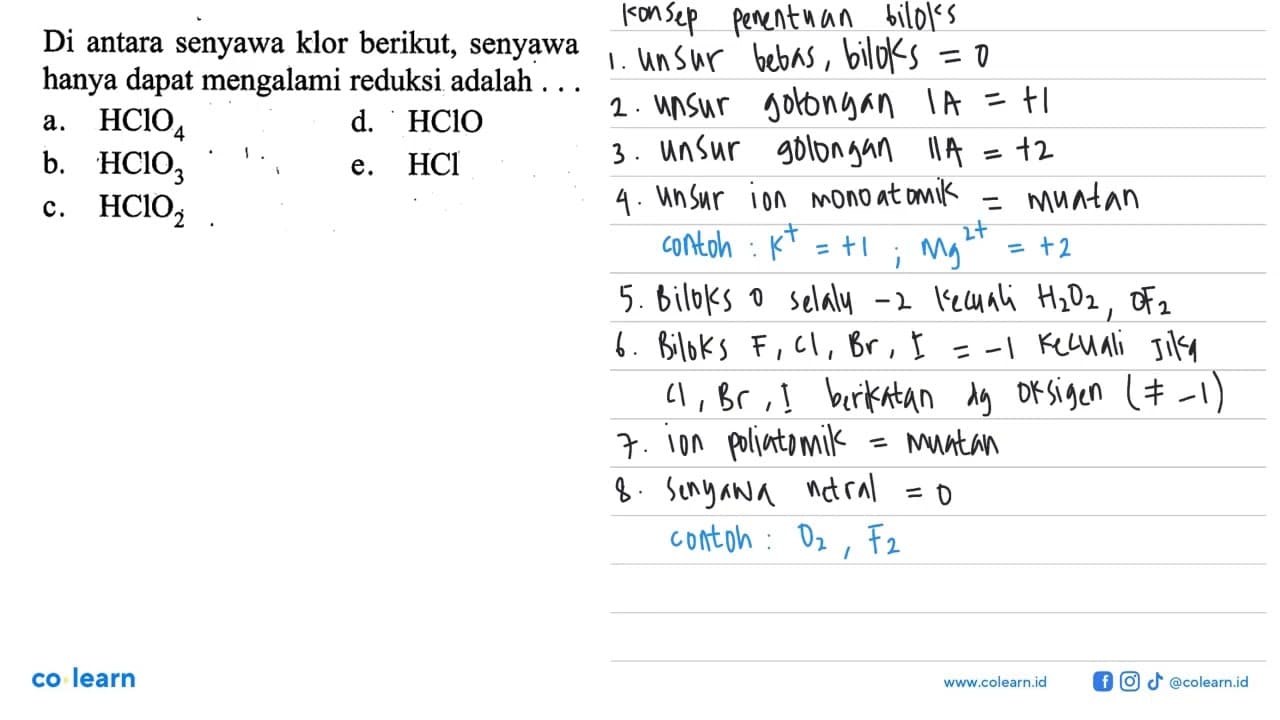 Di antara senyawa klor berikut, senyawa
hanya dapat mengalami reduksi adalah . . .
a. HClO4 d. HClO
b. HClO3 e. HCl
c. HClO2
Konsep penentuan biloks
1. Unsur bebas, biloks = 0
2. Unsur golongan IA = +1
3. Unsur golongan IIA = +2
4. Unsur ion monoatomik = muatan
contoh : K⁺ = +1 ; Mg²⁺ = +2
5. Biloks O selalu -2 kecuali H2O2, OF2
6. Biloks F, Cl, Br, I = -1 kecuali jika
Cl, Br, I berikatan dg oksigen (≠ -1)
7. ion poliatomik = muatan
8. Senyawa netral = 0
contoh : O2, F2
co learn
www.colearn.id
@colearn.id